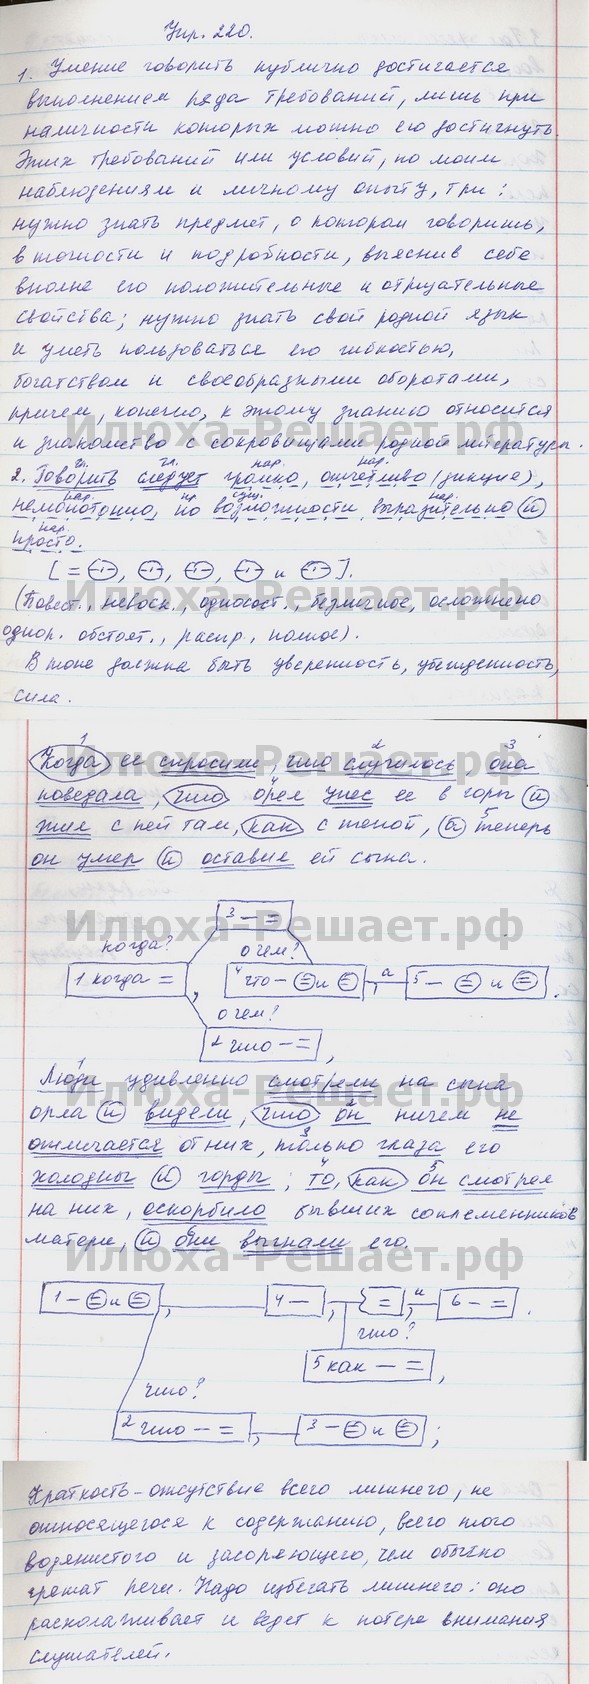 Упр. 220.
1. Умение говорить публично достигается
выполнением ряда требований, лишь при
наличности которых можно его достигнуть.
Этих требований или условий, по моим
наблюдениям и личному опыту, три:
нужно знать предмет, о котором говоришь,
в точности и подробности, выяснив себе
вполне его положительные и отрицательные
свойства; нужно знать свой родной язык
и уметь пользоваться его гибкостью,
богатством и своеобразными оборотами,
причем, конечно, к этому знанию относится
Илюха-Решает.рф
и знакомство с сокровищами родной литературы.
гл. гл. нар. нар.
2. Говорить следует громко, отчетливо (дикция),
нар. пр. сущ. нар.
немонотонно, по возможности выразительно и
нар.
просто.
[ = , , , и ].
(Повест., невоск., односост., безличное, осложнено
однор. обстоят., распр., полное).
В тоне должна быть уверенность, убежденность,
сила.
1 2 3
Когда ее спросили, что случилось, она
Илюха-Решает.рф
4
поведала, что орел унес ее в горы и
5
жил с ней там, как с женой, а теперь
он умер и оставил ей сына.
3 – =
Илюха-Решает.рф
когда? о чем?
1 когда = , 4 что – = и = , а 5 – = и = .
о чем?
2 что – = ,
1
Люди удивленно смотрели на сына
Илюха-Решает.рф
2
орла и видели, что он ничем не
3
отличается от них, только глаза его
4 5
холодны и горды; то, как он смотрел
на них, оскорбило бывших соплеменников
6
матери, и они выгнали его.
Илюха-Решает.рф
1 – = и = , 4 – , = , и 6 – = .
что?
5 как – = ,
что?
2 что – = , 3 – = и = ;
Краткость – отсутствие всего лишнего, не
относящегося к содержанию, всего того
водянистого и засоряющего, чем обычно
грешат речи. Надо избегать лишнего: оно
расхолаживает и ведет к потере внимания
слушателей.